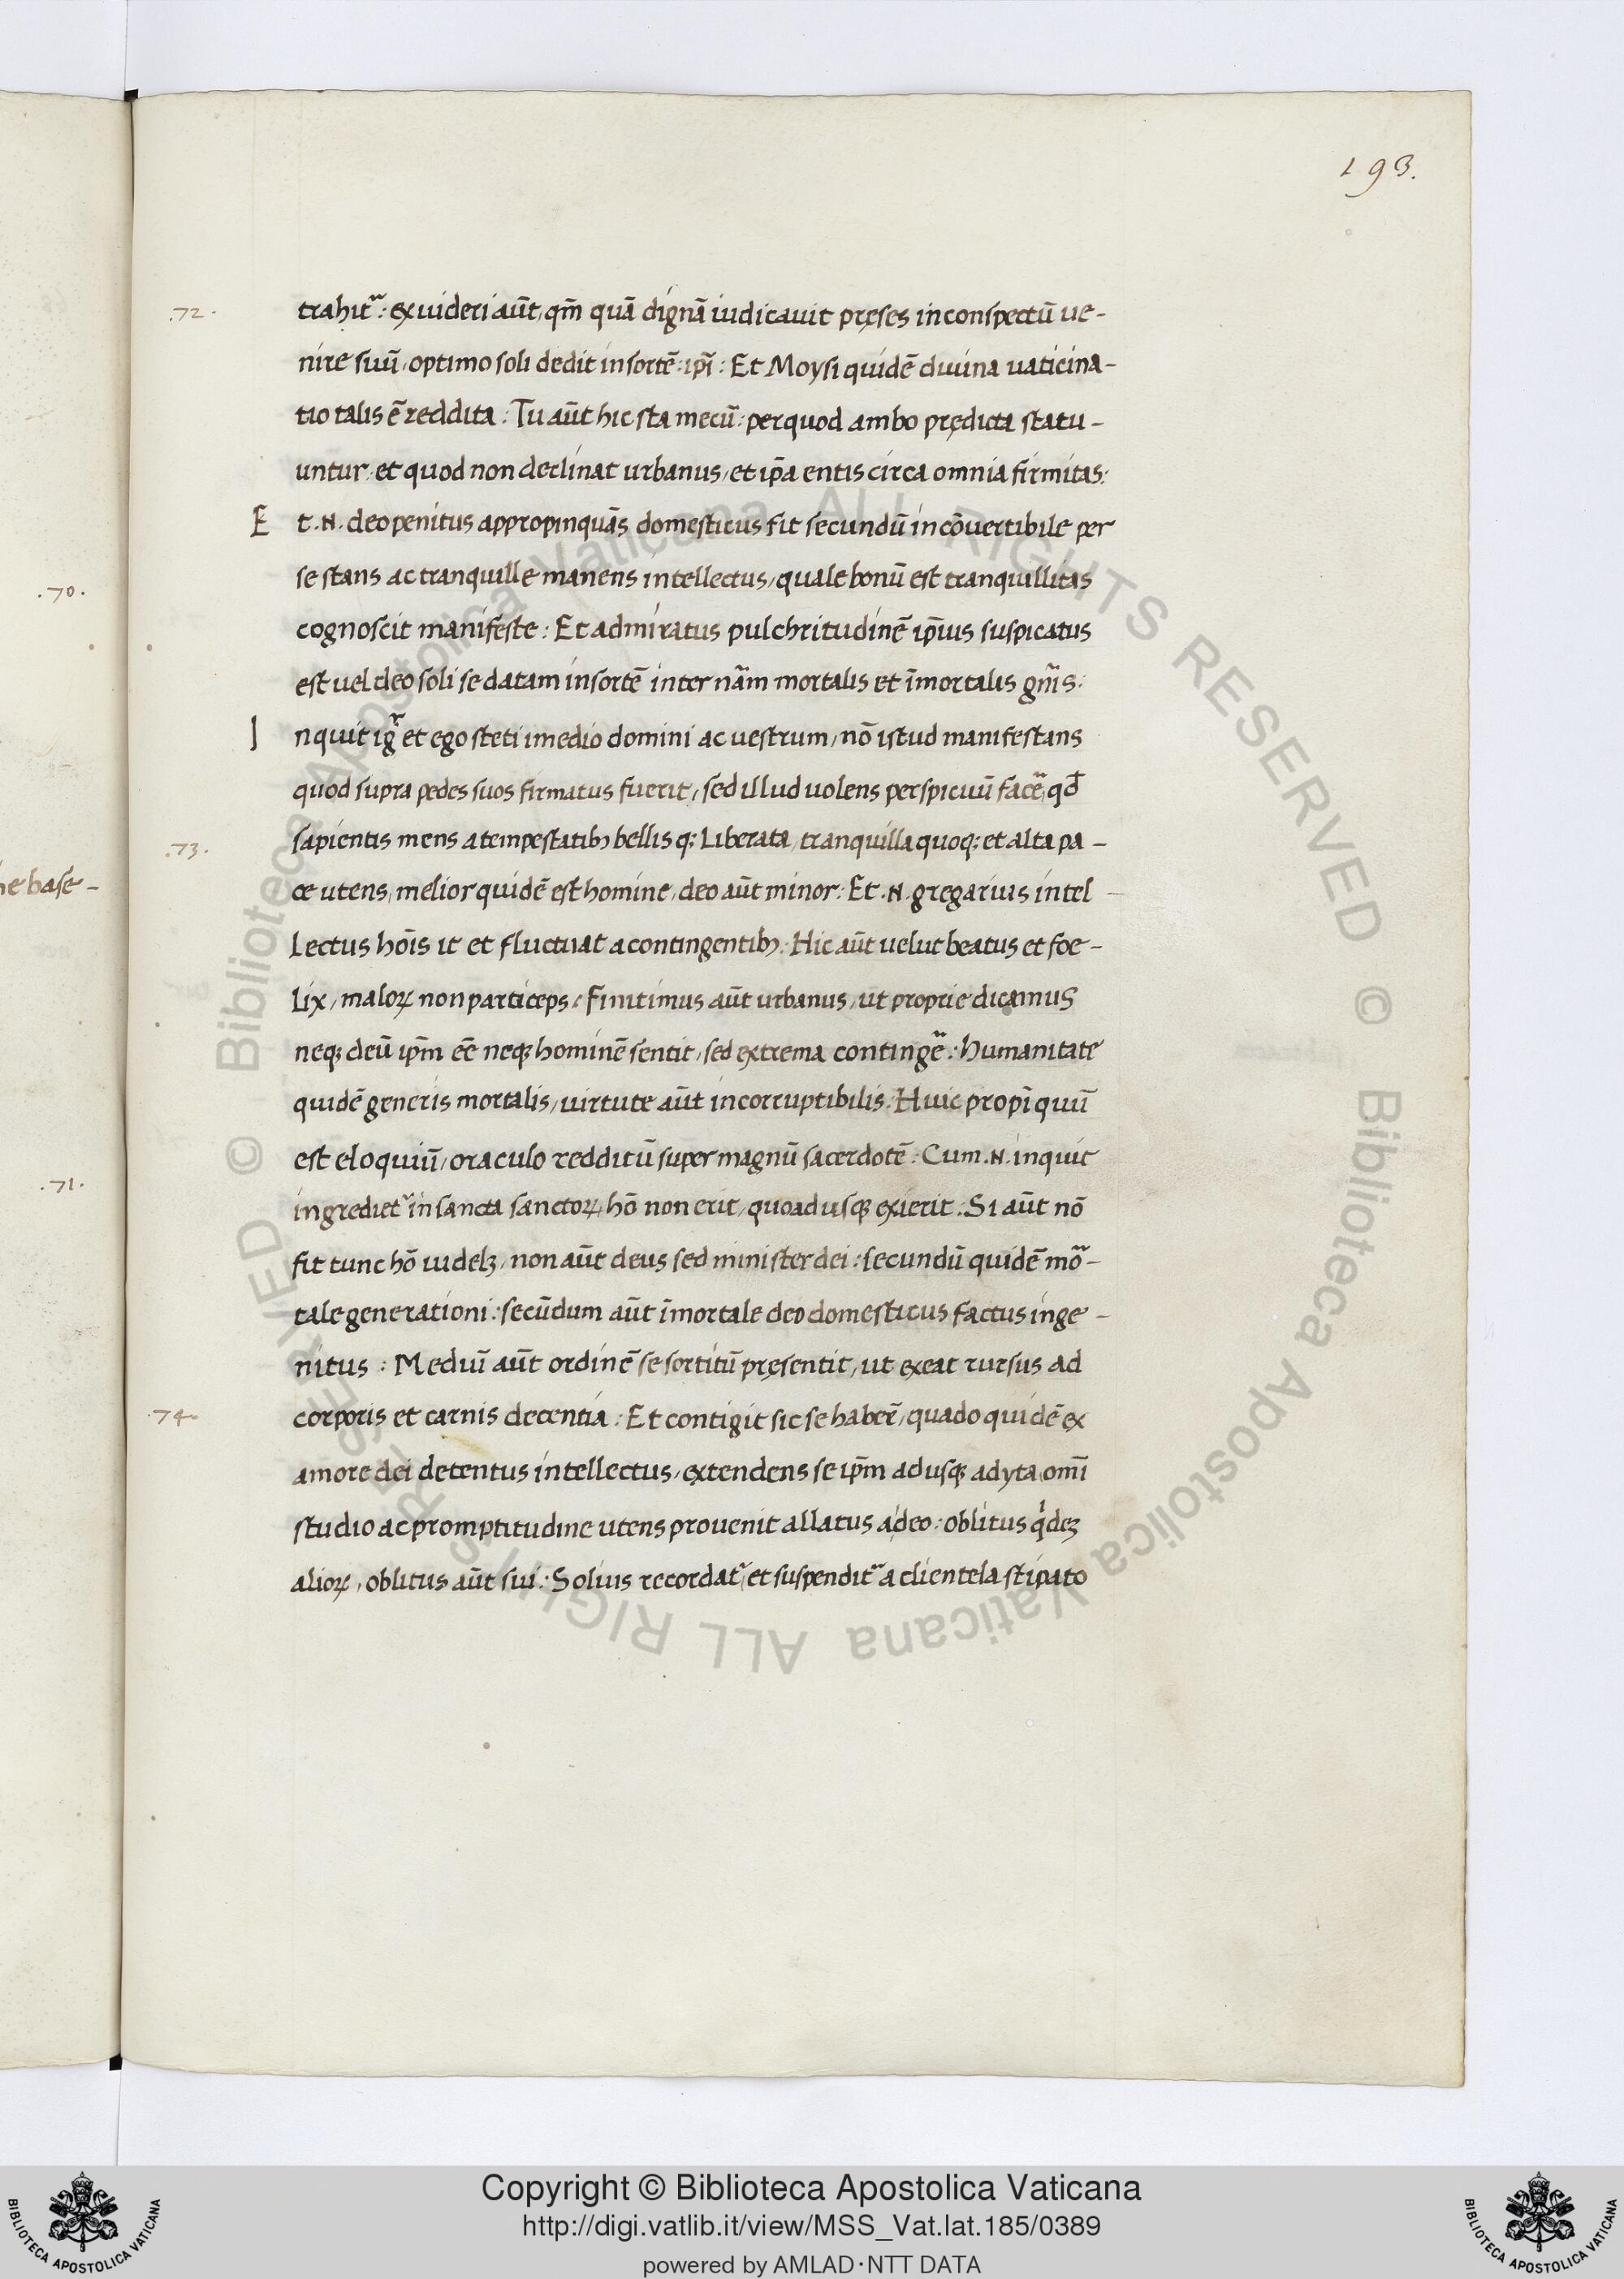 193.
.72. trahit᷑ : ex uideri aūt, qm̄ quā dignā iudicauit pręses in conspectū ue-
nire suū, optimo soli dedit in sortē ip̄i : Et Moysi quidē diuina uaticina-
tio talis ē reddita : Tu aūt hic sta mecū : per quod ambo prędicta statu-
untur, et quod non declinat urbanus, et ip̄a entis circa omnia firmitas :
Et .N. deo penitus appropinquās domesticus fit secundū incōuertibile per
se stans ac tranquille manens intellectus, quale bonū est tranquillitas
cognoscit manifeste : Et admiratus pulchritudinē ip̄ius suspicatus
est uel deo soli se datam in sortē inter nām mortalis et īmortalis gn̄is :
Inquit igr̄ et ego steti imedio domini ac uestrum, nō istud manifestans
quod supra pedes suos firmatus fuerit, sed illud uolens perspicuū facē, qđ
.73. sapientis mens a tempestatibꝫ bellis q; Liberata, tranquilla quoq; et alta pa-
ce utens, melior quidē est homine, deo aūt minor : Et .N. gregarius intel
Lectus hōis it et fluctuat a contingentibꝫ : Hic aūt uelut beatus et foe-
Lix, maloꝝ non particeps : Finitimus aūt urbanus, ut proprie dicamus
neqꝫ deū ip̄m eē neqꝫ hominē sentit, sed extrema contingē : humanitate
quidē generis mortalis, uirtute aūt incorruptibilis. Huic propī quū
est eloquiū, oraculo redditū super magnū sacerdotē : Cum .N. inquit
ingrediet᷑ in sancta sanctoꝝ, hō non erit, quoad usqꝫ exierit : Si aūt nō
fit tunc hō uidelꝫ, non aūt deus sed minister dei : secundū quidē mō-
tale generationi : secūdum aūt īmortale deo domesticus factus inge-
nitus : Mediū aūt ordinē se sortitū pręsentit, ut exeat rursus ad
.74. corporis et carnis decentia : Et contigit sic se haber̄, quado quidē ex
amore dei detentus intellectus, extendens se ip̄m ad usqꝫ adyta, omī
studio ac promptitudine utens prouenit allatus a deo : oblitus qͥdeꝫ
alioꝝ, oblitus aūt sui : Solius recordat᷑, et suspendit᷑ a clientela stipato
.70.
he base-
.71.
© Biblioteca Apostolica Vaticana ALL RIGHTS RESERVED © Biblioteca Apostolica Vaticana ALL RIGHTS RESERVED
BIBLIOTECA APOSTOLICA VATICANA
Copyright © Biblioteca Apostolica Vaticana
http://digi.vatlib.it/view/MSS_Vat.lat.185/0389
powered by AMLAD·NTT DATA
BIBLIOTECA APOSTOLICA VATICANA